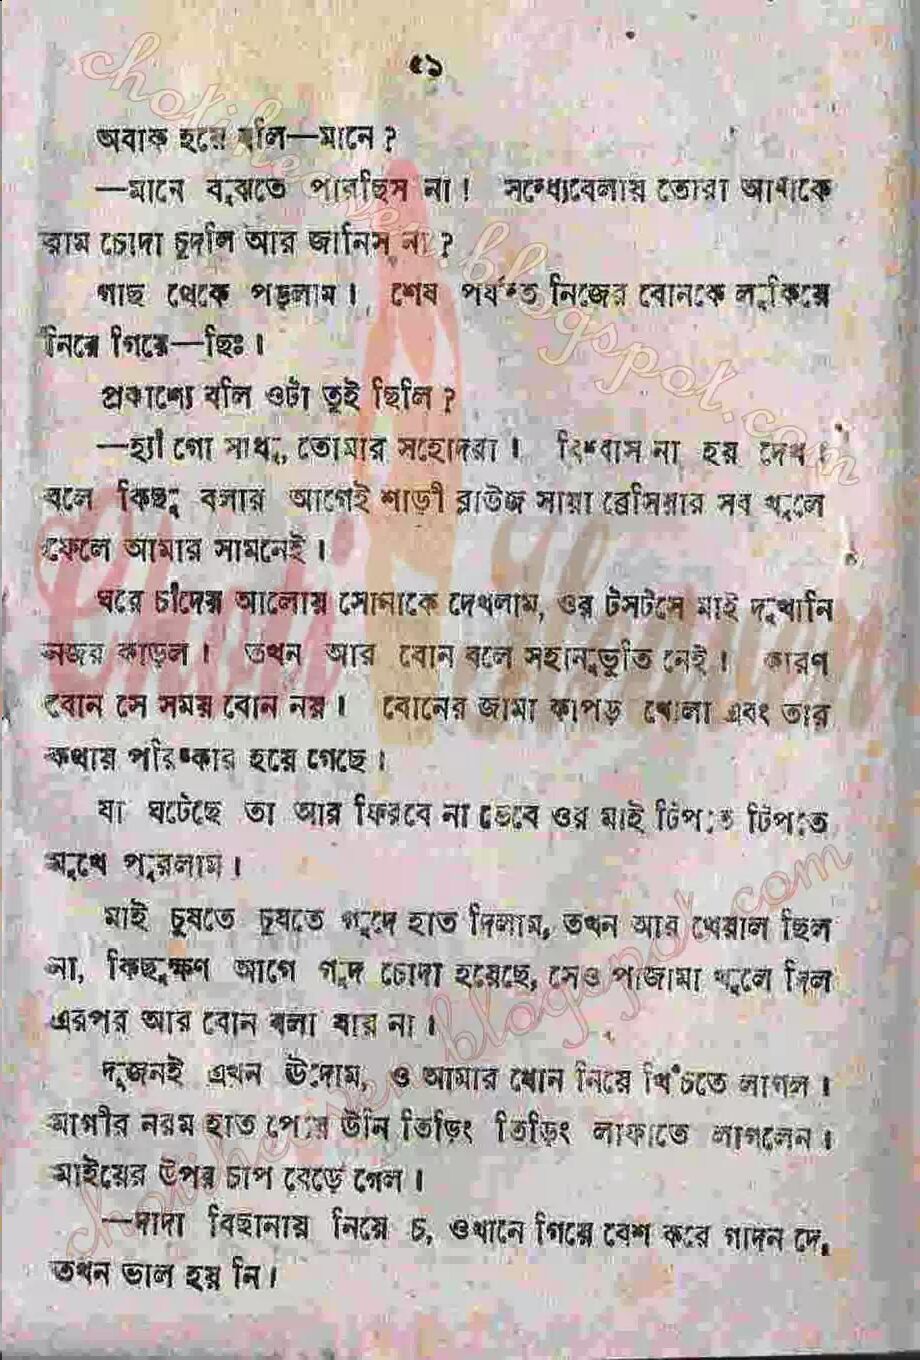 ৫১
অবাক হয়ে বলি—মানে ?
—মানে বুঝতে পারছিস না ! সন্ধ্যেবেলায় তোরা আমাকে
রাম চোদা চুদলি আর জানিস না ?
গাছ থেকে পড়লাম । শেষ পর্যন্ত নিজের বোনকে লুকিয়ে
নিয়ে গিয়ে—ছিঃ ।
প্রকাশ্যে বলি ওটা তুই ছিলি ?
—হ্যাঁ গো সাধু, তোমার সহোদরা । বিশ্বাস না হয় দেখ ।
বলে কিছু বলার আগেই শাড়ী ব্লাউজ সায়া ব্রেসিয়ার সব খুলে
ফেলে আমার সামনেই ।
ঘরে চাঁদের আলোয় সোনাকে দেখলাম, ওর টসটসে মাই দুখানি
নজর কাড়ল । তখন আর বোন বলে সহানুভুতি নেই । কারণ
বোন সে সময় বোন নয় । বোনের জামা কাপড় খোলা এবং তার
কথায় পরিষ্কার হয়ে গেছে ।
যা ঘটেছে তা আর ফিরবে না ভেবে ওর মাই টিপতে টিপতে
মুখে পুরলাম ।
মাই চুষতে চুষতে গুদে হাত দিলাম, তখন আর খেয়াল ছিল
না, কিছুক্ষণ আগে গুদ চোদা হয়েছে, সেও পাজামা খুলে দিল
এরপর আর বোন বলা যায় না ।
দুজনই এখন উদোম, ও আমার ধোন নিয়ে খিঁচতে লাগল ।
মাগীর নরম হাত পেয়ে উনি তিড়িং তিড়িং লাফাতে লাগলেন ।
মাইয়ের উপর চাপ বেড়ে গেল ।
—দাদা বিছানায় নিয়ে চ, ওখানে গিয়ে বেশ করে গাদন দে,
তখন ভাল হয় নি ।
chotiheaven.blogspot.com
Choti Heaven
chotiheaven.blogspot.com